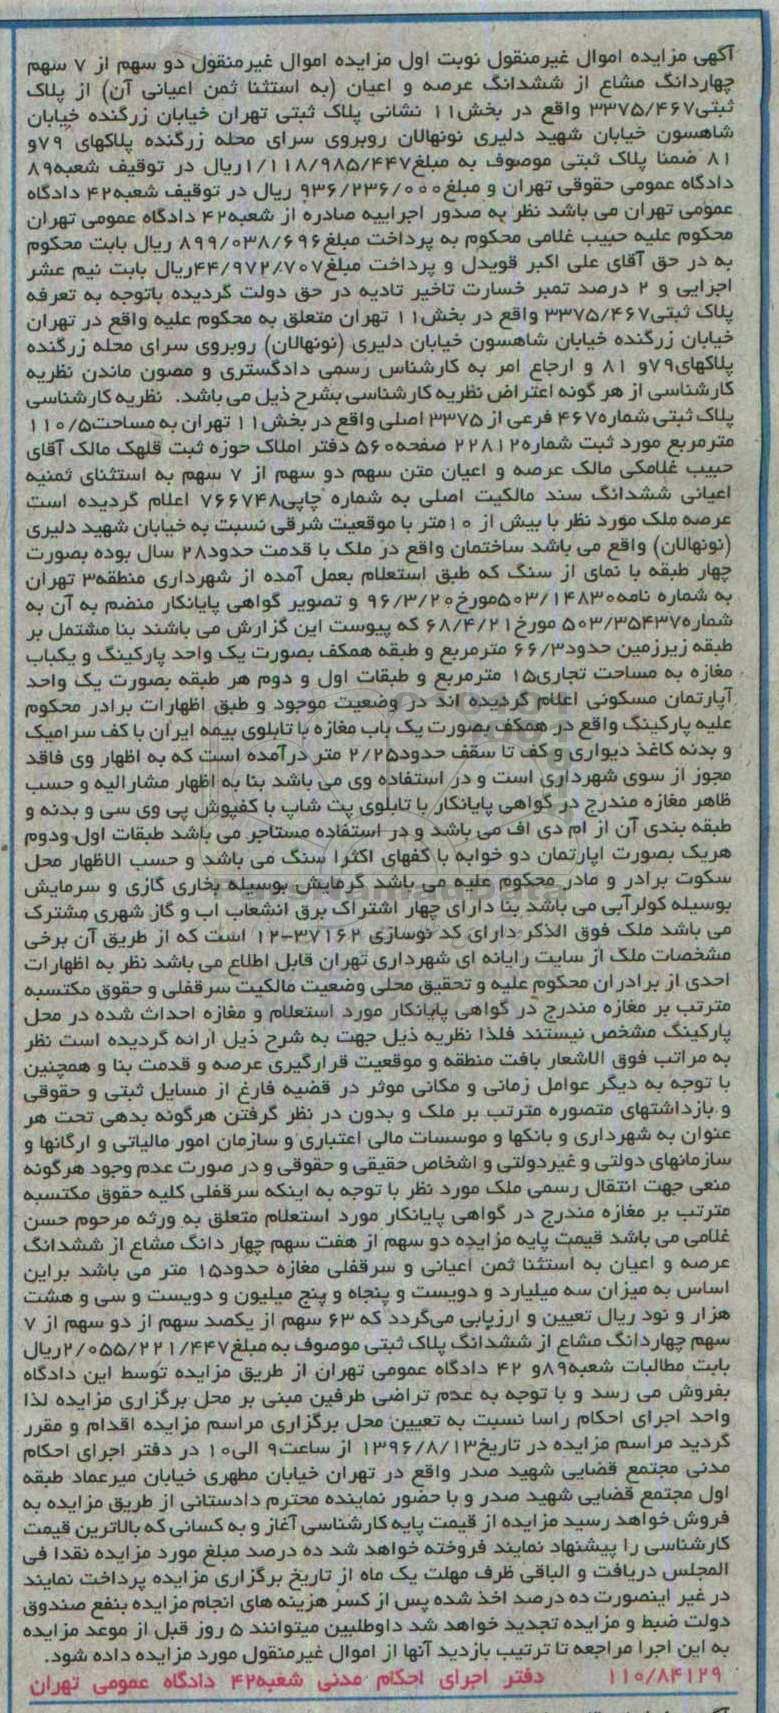 آگهی مزایده اموال غیرمنقول نوبت اول مزایده اموال غیرمنقول دو سهم از ۷ سهم
چهاردانگ مشاع از ششدانگ عرصه و اعیان (به استثنا ثمن اعیانی آن) از پلاک
ثبتی۳۳۷۵/۴۶۷ واقع در بخش۱۱ نشانی پلاک ثبتی تهران خیابان زرگنده خیابان
شاهسون خیابان شهید دلیری نونهالان روبروی سرای محله زرگنده پلاکهای ۷۹و
۸۱ ضمنا پلاک ثبتی موصوف به مبلغ۱/۱۱۸/۹۸۵/۴۴۷ریال در توقیف شعبه۸۹
دادگاه عمومی حقوقی تهران و مبلغ۹۳۶/۲۳۶/۰۰۰ ریال در توقیف شعبه۴۲ دادگاه
عمومی تهران می باشد نظر به صدور اجراییه صادره از شعبه۴۲ دادگاه عمومی تهران
محکوم علیه حبیب غلامی محکوم به پرداخت مبلغ۸۹۹/۰۳۸/۶۹۶ ریال بابت محکوم
به در حق آقای علی اکبر قویدل و پرداخت مبلغ۴۴/۹۷۲/۷۰۷ریال بابت نیم عشر
اجرایی و ۲ درصد تمبر خسارت تاخیر تادیه در حق دولت گردیده باتوجه به تعرفه
پلاک ثبتی۳۳۷۵/۴۶۷ واقع در بخش۱۱ تهران متعلق به محکوم علیه واقع در تهران
خیابان زرگنده خیابان شاهسون خیابان دلیری (نونهالان) روبروی سرای محله زرگنده
پلاکهای۷۹و ۸۱ و ارجاع امر به کارشناس رسمی دادگستری و مصون ماندن نظریه
کارشناسی از هر گونه اعتراض نظریه کارشناسی بشرح ذیل می باشد. نظریه کارشناسی
پلاک ثبتی شماره۴۶۷ فرعی از ۳۳۷۵ اصلی واقع در بخش۱۱ تهران به مساحت۱۱۰/۵
مترمربع مورد ثبت شماره۲۲۸۱۲ صفحه۵۶۰ دفتر املاک حوزه ثبت قلهک مالک آقای
حبیب غلامکی مالک عرصه و اعیان متن سهم دو سهم از ۷ سهم به استثنای ثمنیه
اعیانی ششدانگ سند مالکیت اصلی به شماره چاپی۷۶۶۷۴۸ اعلام گردیده است
عرصه ملک مورد نظر با بیش از ۱۰متر با موقعیت شرقی نسبت به خیابان شهید دلیری
(نونهالان) واقع می باشد ساختمان واقع در ملک با قدمت حدود۲۸ سال بوده بصورت
چهار طبقه با نمای از سنگ که طبق استعلام بعمل آمده از شهرداری منطقه۳ تهران
به شماره نامه۵۰۳/۱۴۸۳۰مورخ۹۶/۳/۲۰ و تصویر گواهی پایانکار منضم به آن به
شماره۵۰۳/۳۵۴۳۷ مورخ۶۸/۴/۲۱ که پیوست این گزارش می باشند بنا مشتمل بر
طبقه زیرزمین حدود۶۶/۳ مترمربع و طبقه همکف بصورت یک واحد پارکینگ و یکباب
مغازه به مساحت تجاری۱۵ مترمربع و طبقات اول و دوم هر طبقه بصورت یک واحد
آپارتمان مسکونی اعلام گردیده اند در وضعیت موجود و طبق اظهارات برادر محکوم
علیه پارکینگ واقع در همکف بصورت یک باب مغازه با تابلوی بیمه ایران با کف سرامیک
و بدنه کاغذ دیواری و کف تا سقف حدود۲/۲۵ متر درآمده است که به اظهار وی فاقد
مجوز از سوی شهرداری است و در استفاده وی می باشد بنا به اظهار مشارالیه و حسب
ظاهر مغازه مندرج در گواهی پایانکار با تابلوی پت شاپ با کفپوش پی وی سی و بدنه و
طبقه بندی آن از ام دی اف می باشد و در استفاده مستاجر می باشد طبقات اول ودوم
هریک بصورت اپارتمان دو خوابه با کفهای اکثرا سنگ می باشد و حسب الاظهار محل
سکوت برادر و مادر محکوم علیه می باشد گرمایش بوسیله بخاری گازی و سرمایش
بوسیله کولرآبی می باشد بنا دارای چهار اشتراک برق انشعاب اب و گاز شهری مشترک
می باشد ملک فوق الذکر دارای کد نوسازی ۳۷۱۶۲-۱۲ است که از طریق آن برخی
مشخصات ملک از سایت رایانه ای شهرداری تهران قابل اطلاع می باشد نظر به اظهارات
احدی از برادران محکوم علیه و تحقیق محلی وضعیت مالکیت سرقفلی و حقوق مکتسبه
مترتب بر مغازه مندرج در گواهی پایانکار مورد استعلام و مغازه احداث شده در محل
پارکینگ مشخص نیستند فلذا نظریه ذیل جهت به شرح ذیل ارائه گردیده است نظر
به مراتب فوق الاشعار بافت منطقه و موقعیت قرارگیری عرصه و قدمت بنا و همچنین
با توجه به دیگر عوامل زمانی و مکانی موثر در قضیه فارغ از مسایل ثبتی و حقوقی
و بازداشتهای متصوره مترتب بر ملک و بدون در نظر گرفتن هرگونه بدهی تحت هر
عنوان به شهرداری و بانکها و موسسات مالی اعتباری و سازمان امور مالیاتی و ارگانها و
سازمانهای دولتی و غیردولتی و اشخاص حقیقی و حقوقی و در صورت عدم وجود هرگونه
منعی جهت انتقال رسمی ملک مورد نظر با توجه به اینکه سرقفلی کلیه حقوق مکتسبه
مترتب بر مغازه مندرج در گواهی پایانکار مورد استعلام متعلق به ورثه مرحوم حسن
غلامی می باشد قیمت پایه مزایده دو سهم از هفت سهم چهار دانگ مشاع از ششدانگ
عرصه و اعیان به استثنا ثمن اعیانی و سرقفلی مغازه حدود۱۵ متر می باشد براین
اساس به میزان سه میلیارد و دویست و پنجاه و پنج میلیون و دویست و سی و هشت
هزار و نود ریال تعیین و ارزیابی می‌گردد که ۶۳ سهم از یکصد سهم از دو سهم از ۷
سهم چهاردانگ مشاع از ششدانگ پلاک ثبتی موصوف به مبلغ۲/۰۵۵/۲۲۱/۴۴۷ریال
بابت مطالبات شعبه۸۹و ۴۲ دادگاه عمومی تهران از طریق مزایده توسط این دادگاه
بفروش می رسد و با توجه به عدم تراضی طرفین مبنی بر محل برگزاری مزایده لذا
واحد اجرای احکام راسا نسبت به تعیین محل برگزاری مراسم مزایده اقدام و مقرر
گردید مراسم مزایده در تاریخ۱۳۹۶/۸/۱۳ از ساعت۹ الی۱۰ در دفتر اجرای احکام
مدنی مجتمع قضایی شهید صدر واقع در تهران خیابان مطهری خیابان میرعماد طبقه
اول مجتمع قضایی شهید صدر و با حضور نماینده محترم دادستانی از طریق مزایده به
فروش خواهد رسید مزایده از قیمت پایه کارشناسی آغاز و به کسانی که بالاترین قیمت
کارشناسی را پیشنهاد نمایند فروخته خواهد شد ده درصد مبلغ مورد مزایده نقدا فی
المجلس دریافت و الباقی ظرف مهلت یک ماه از تاریخ برگزاری مزایده پرداخت نمایند
در غیر اینصورت ده درصد اخذ شده پس از کسر هزینه های انجام مزایده بنفع صندوق
دولت ضبط و مزایده تجدید خواهد شد داوطلبین میتوانند ۵ روز قبل از موعد مزایده
به این اجرا مراجعه تا ترتیب بازدید آنها از اموال غیرمنقول مورد مزایده داده شود.
۱۱۰/۸۴۱۲۹ دفتر اجرای احکام مدنی شعبه۴۲ دادگاه عمومی تهران